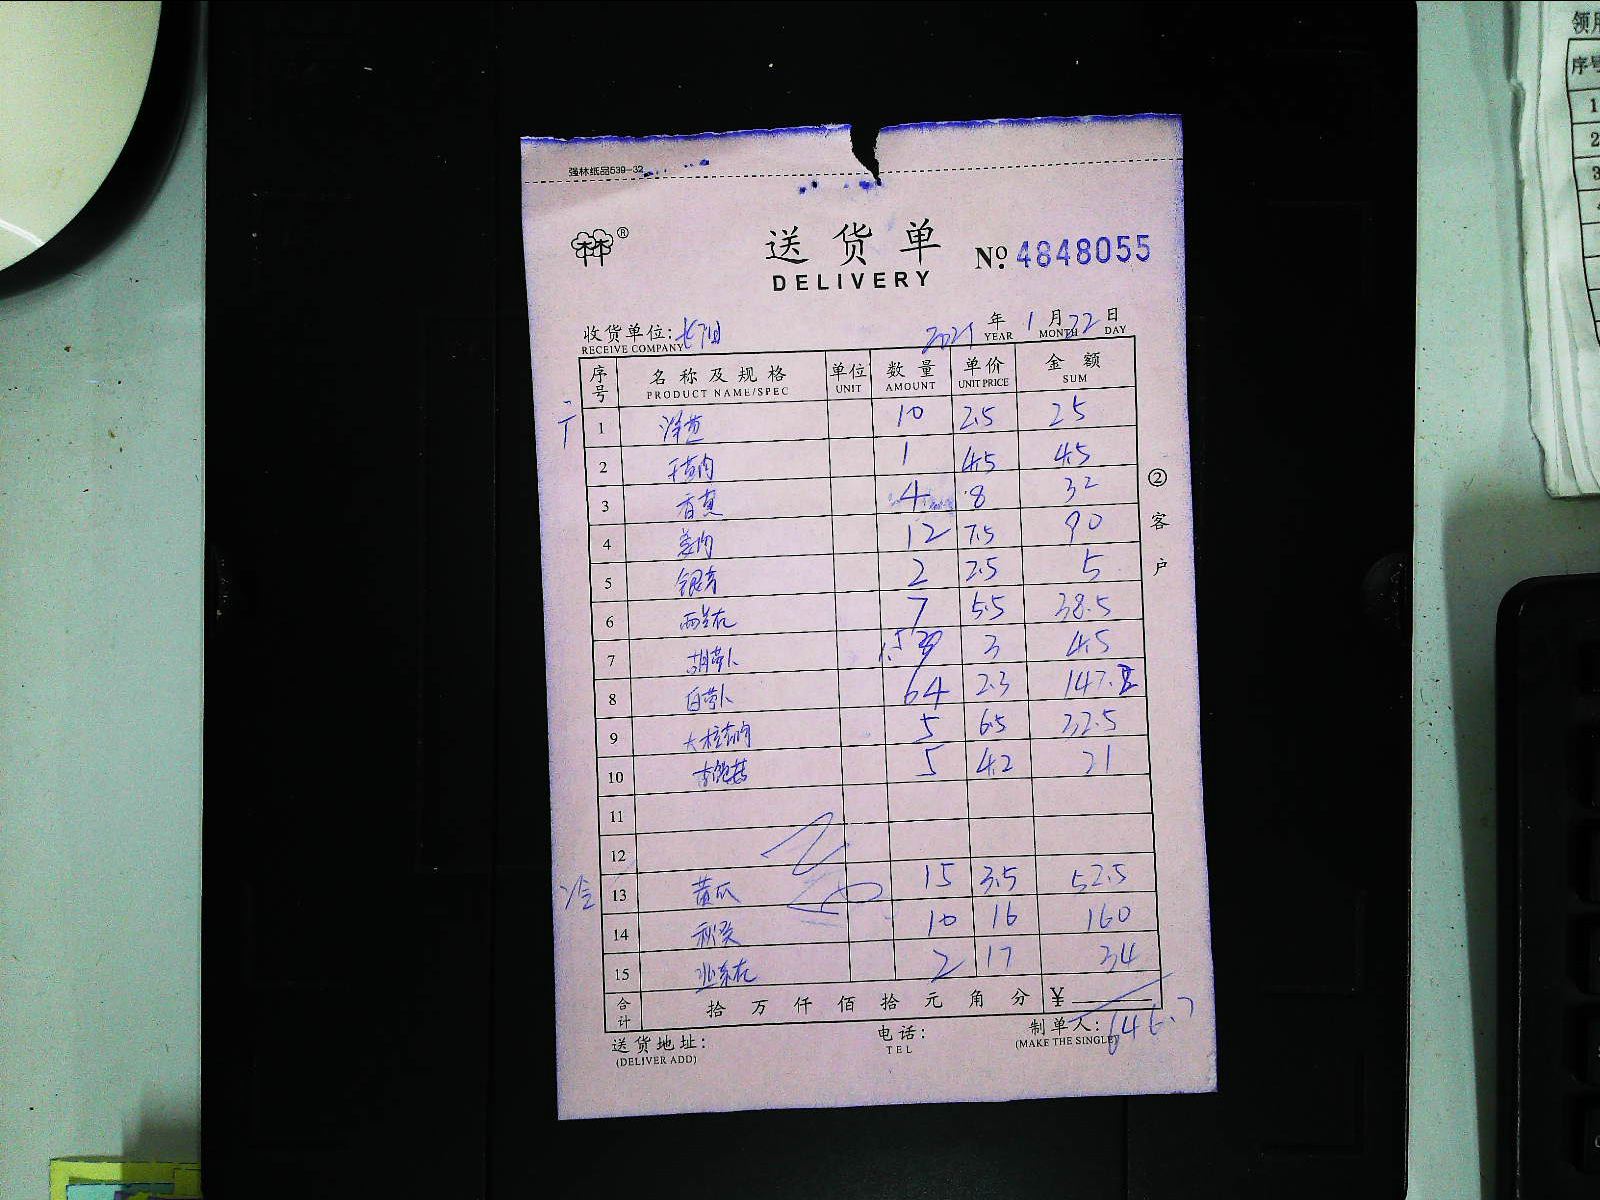 强林纸品539-32
林®
送货单
DELIVERY
№ 4848055
收货单位: 2021年1月22日
RECEIVE COMPANY YEAR MONTH DAY
序号 名称及规格 单位 数量 单价 金额
PRODUCT NAME/SPEC UNIT AMOUNT UNIT PRICE SUM
1 洋葱 10 2.5 25
2 1 4.5 4.5
3 4 8 32
4 姜肉 12 7.5 90
5 银芽 2 2.5 5
6 西兰花 7 5.5 38.5
7 胡萝卜 1.5 3 4.5
8 白萝卜 64 2.3 147.2
9 5 6.5 32.5
10 5 4.2 21
11
12
冷 13 黄瓜 15 3.5 52.5
14 秋葵 10 16 160
15 2 17 34
合计 拾万仟佰拾元角分 ¥ 646.7
送货地址: 电话: 制单人:
(DELIVER ADD) TEL (MAKE THE SINGLE)
②客户
领用
序号
1
2
3